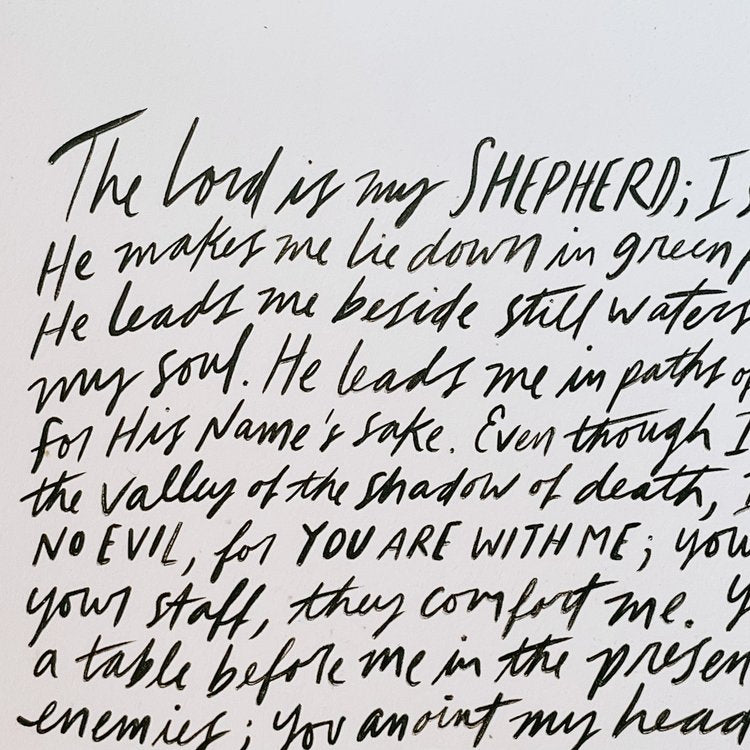 The Lord is my SHEPHERD; I
He makes me lie down in green
He leads me beside still waters
my soul. He leads me in paths of
for His Name's sake. Even though I
the valley of the shadow of death, I
NO EVIL, for YOU ARE WITH ME; your
your staff, they comfort me. Y
a table before me in the presen
enemies; you anoint my head